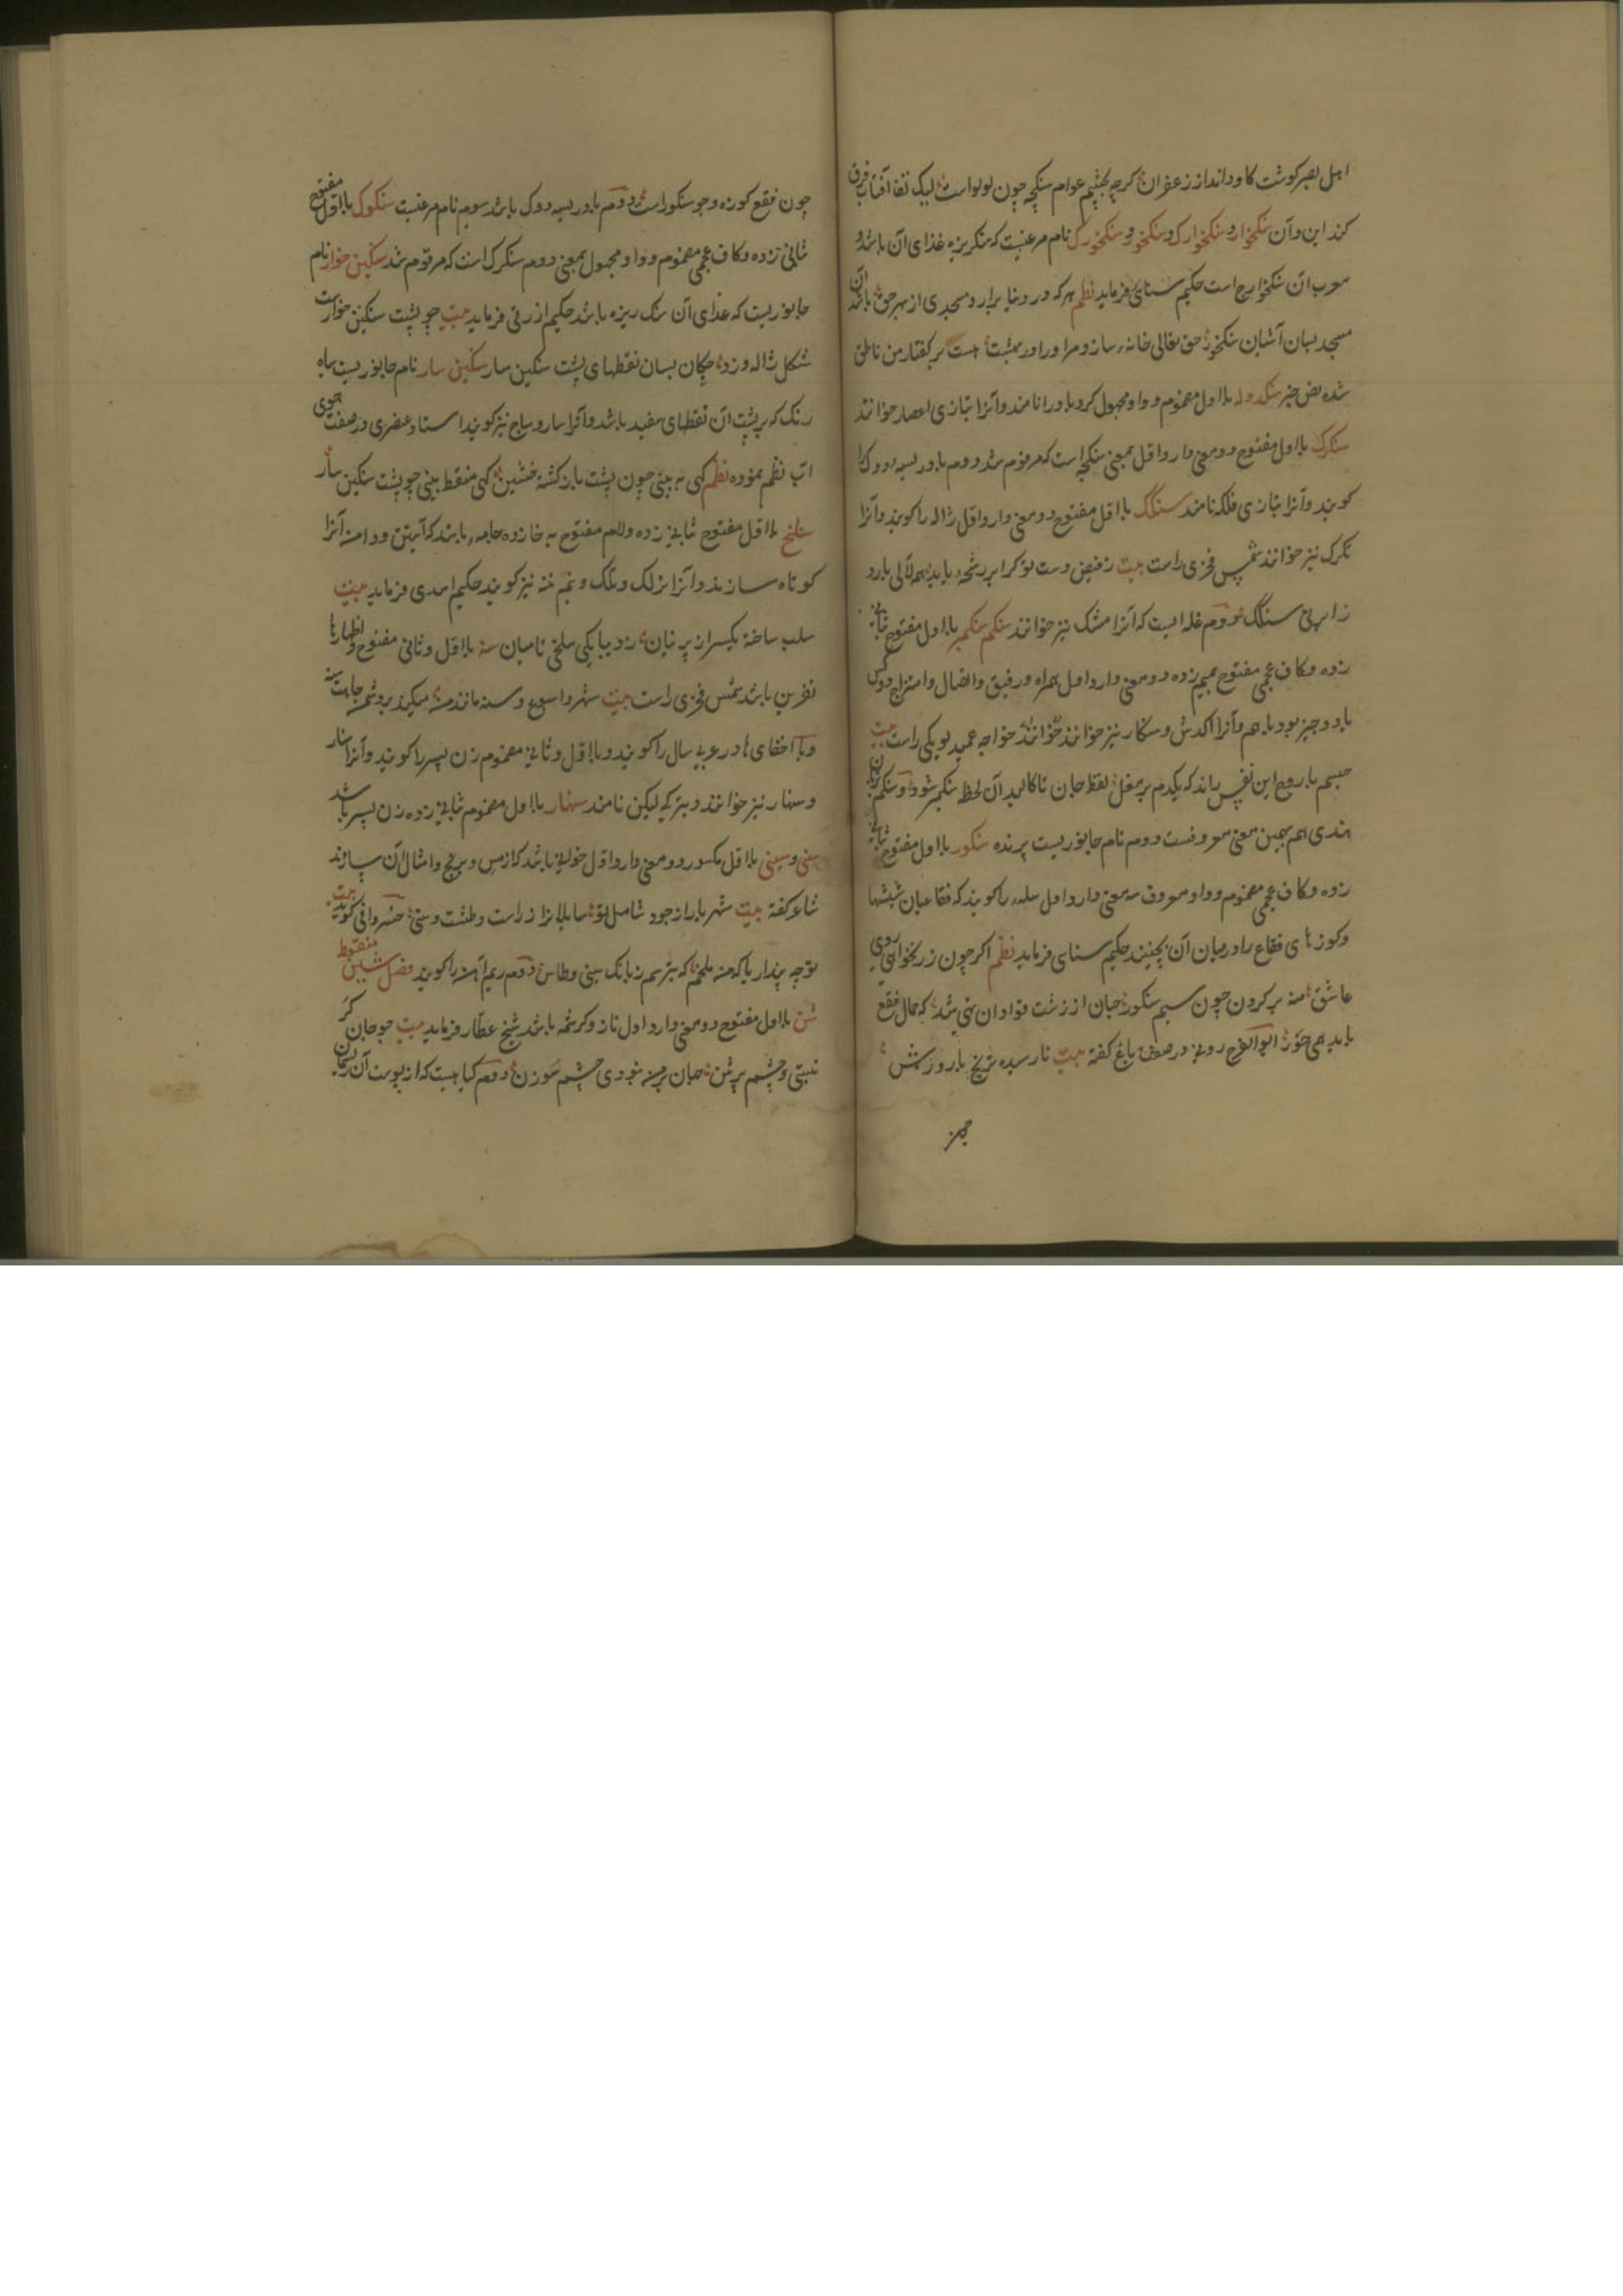 اهل بصر کوشت کاو داند از زعفران کرچه بچشم عوام سنکچه چون لولو است لیک تف آفتاب فرق
کند این و آن سنکخوار و سنکخوارک و سنکخور و سنکخورک نام مرغیست که سنکریزه غذای آن باشد و
معرب آن سنکخوارج است حکیم سنائی فرماید نظم هر که در دنیا برارد مسجدی از بهر حق باشد آن
مسجد بسان آشیان سنکخور حق تعالی خانه سازد مر او را در بهشت هست بر کفتار من ناطق
شده نص خبر سنکدوله با اول مضموم و واو مجهول کردباد را نامند و آنرا بتازی اعصار خوانند
سنکرک با اول مفتوح دو معنی دارد اول بمعنی سنکچه است که مرقوم شد دوم بادریسه دوک را
کویند و آنرا بتازی فلکه نامند سنکک با اول مفتوح دو معنی دارد اول ژاله را کویند و آنرا
تکرک نیز خوانند شمس فخری راست بیت ز فیض دست تو کر ابر رشحه یابد همه لآلی بارد
ز ابر بی سنکک دوم غله ایست که آنرا مشنک نیز خوانند سنکم سنکمبر با اول مفتوح ثانی
زده و کاف عجمی مفتوح بمیم زده دو معنی دارد اول همراه و رفیق و اتصال و امتزاج دو کس
یا دو چیز بود باهم و آنرا اکدش و سنکار نیز خوانند خواجه عمید لویکی راست بیت
جسم با روح این نفس راند که یکدم بر مغل لفظ جان تا کالبد آن لحظ سنکمبر شود و سنکم بزبان
هندی هم بهمین معنی معروفست دوم نام جانوریست پرنده سنکور با اول مفتوح ثانی
زده و کاف عجمی مضموم و واو معروف سه معنی دارد اول سله را کویند که فقاعیان شیشها
و کوزهای فقاع را در میان آن بچینند حکیم سنایی فرماید نظم اکر چون زر نخواهی روی
عاشق منه بر کردن چون سیم سنکور جهان از زشت قوادان تهی شد که حمال فقع
باید همی حور ابوالفرج رونی در صفت باغ کفته بیت نار سیده ترنج بارورش
چون فقع کوزه و چو سنکور است دوم بادریسه دوک باشد سوم نام مرغیست سنکوک با اول مفتوح
ثانی زده و کاف عجمی مضموم و واو مجهول بمعنی دوم سنکرک است که مرقوم شد سنکین خوار نام
جانوریست که غذای آن سنک ریزه باشد حکیم ازرقی فرماید بیت چو پشت سنکین خوار است
شکل ژاله و زو چکان بسان نقطهای پشت سنکین سار سنکین سار نام جانوریست سیاه
رنک که بر پشت آن نقطهای سفید باشد و آنرا سار و ساج نیز کویند استاد عنصری در صفت جوی
آب نظم نموده نظم کهی به بینی چون پشت بارکشه خشین کهی منقط بینی چو پشت سنکین سار
سنلخ با اول مفتوح ثانی زده و لام مفتوح به خا زده جامه باشد که آستین و دامن آنرا
کوتاه سازند و آنرا یزلک و یلک و نیم تنه نیز کویند حکیم اسدی فرماید بیت
سلب ساخته یکسر از پرنیان ز دیبا یکی سلخی تا میان سنه با اول و ثانی مفتوح و اظهار ها
نفرین باشد شمس فخری راست بیت
و با اخفای ها در عربی سال را کویند و با اول و ثانی مضموم زن پسر را کویند و آنرا سنار
و سنهار نیز خوانند و بترکی لیکن نامند سنهار با اول مضموم ثانی زده زن پسر باشد
سنی و سینی با اول مکسور دو معنی دارد اول خوانی باشد که از مس و برنج و امثال آن سازند
شاعر کفته بیت شهریارا از جود شامل تو سایلانرا زر است و طشت و سنی خسروانی کوید بیت
تو چه پنداریا که من ملخم که بترسم ز بانک سینی و طاس دوم ریم آهن را کویند فصل شین منقوط
شن با اول مفتوح دو معنی دارد اول ناز و کرشمه باشد شیخ عطار فرماید بیت چو جان کر
نیستی و چشم پر شن جهان بر من نبودی چشم سوزن دوم کیاهیست که از پوست آن ریسمان